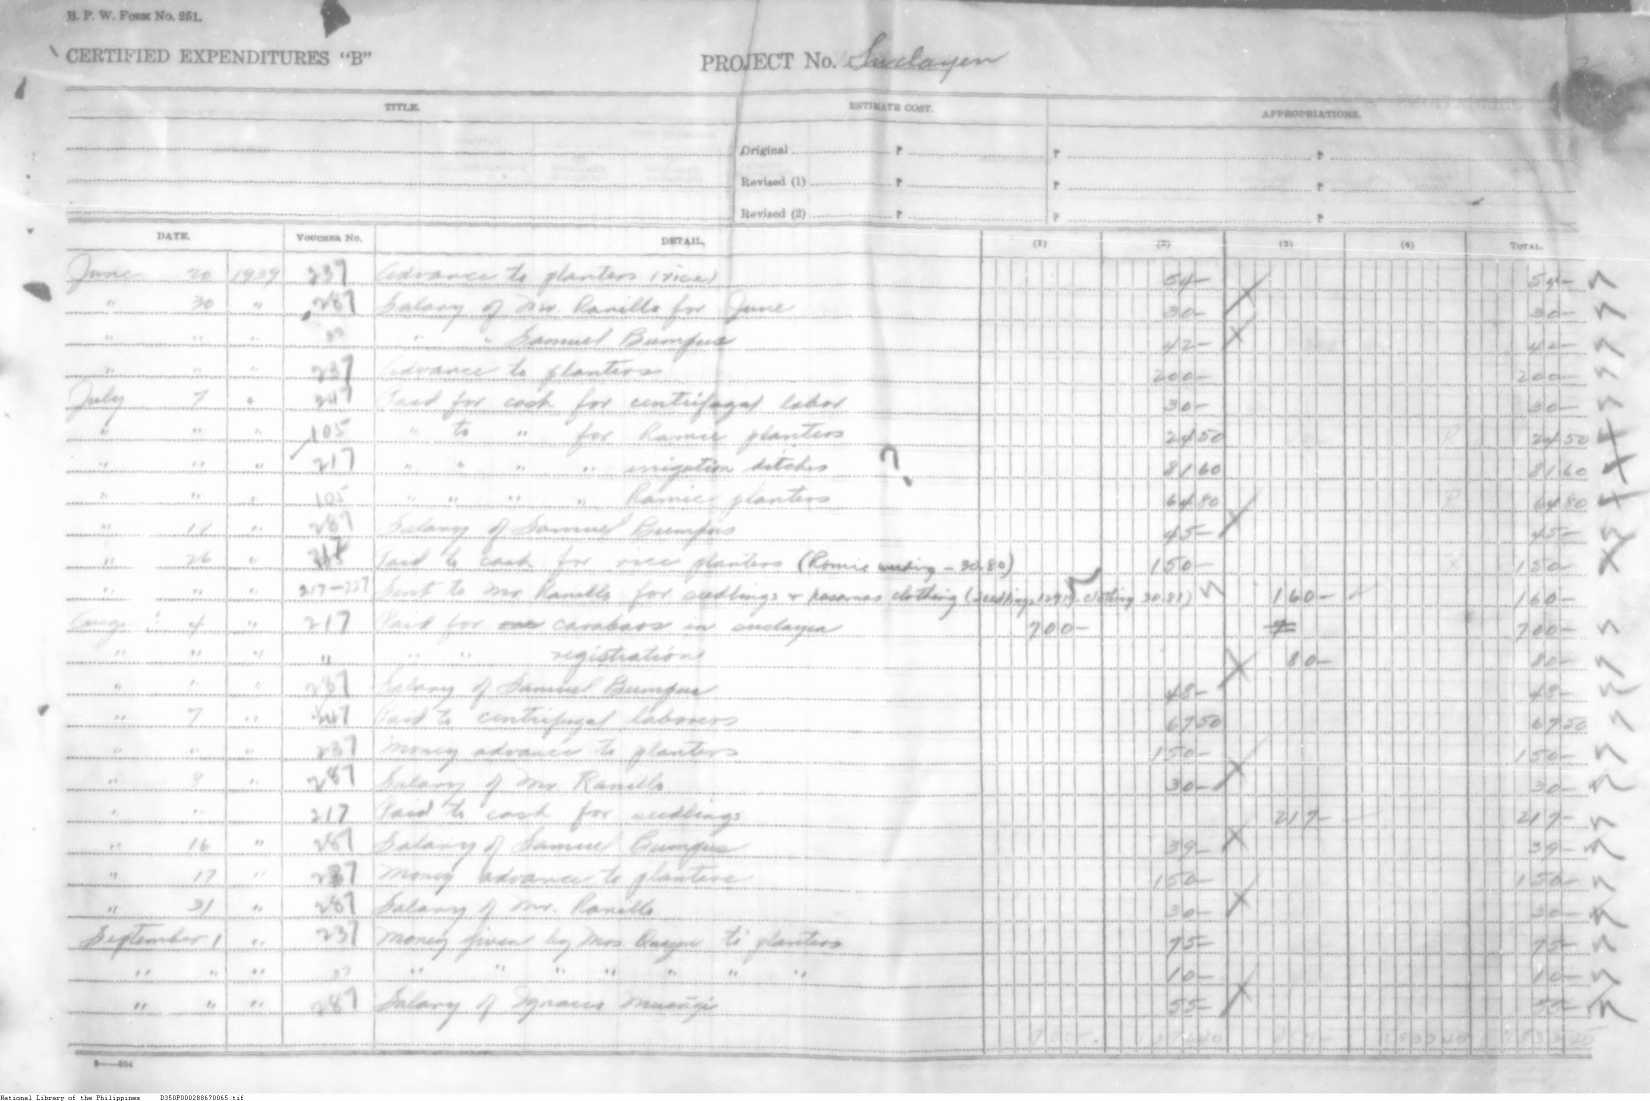 B. P. W. Form No. 251.
CERTIFIED EXPENDITURES "B" PROJECT No. Suclayen
TITLE. ESTIMATE COST. APPROPRIATIONS.
Original ₱ ₱ ₱
Revised (1) ₱ ₱ ₱
Revised (2) ₱ ₱ ₱
DATE. VOUCHER No. DETAIL. (1) (2) (3) (4) TOTAL.
June 20 1939 237 Advance to planters (rice) 54- 54-
" 30 " 287 Salary of Mr Ranillo for June 30- 30-
" " " " " Samuel Bumpus 42- 42-
" " " 237 Advance to planters 200- 200-
July 7 " 247 Paid for cash for centrifugal labor 30- 30-
" " " 105 " to " for Ramie planters 24 50 24 50
" " " 217 " " " " irrigation ditches ? 81 60 81 60
" " " 105 " " " " Ramie planters 64 80 64 80
" " 287 Salary of Samuel Bumpus 45- 45-
" 26 " Paid to cash for rice planters (Ramie weeding - 30.80) 150- 150-
" " " 217-227 Sent to Mr Ranillo for seedlings + clothing 160- 160-
Aug. 4 " 217 Paid for carabaos in Suclayen 700- 700-
" " " " " " registration 80- 80-
" " " 287 Salary of Samuel Bumpus 48- 48-
" 7 " 247 Paid to centrifugal laborers 67 50 67 50
" " " 237 Money advance to planters 150- 150-
" 9 " 287 Salary of Mr Ranillo 30- 30-
" " 217 Paid to cash for seedlings 217- 217-
" 16 " 287 Salary of Samuel Bumpus 39- 39-
" 17 " 237 Money advance to planters 150- 150-
" 31 " 287 Salary of Mr. Ranillo 30- 30-
September 1 " 237 Money given by Mrs. to planters 75- 75-
" " " " " " " " " " 10- 10-
" " " 287 Salary of Ignacio 55- 55-
National Library of the Philippines D350P000288670065.tif